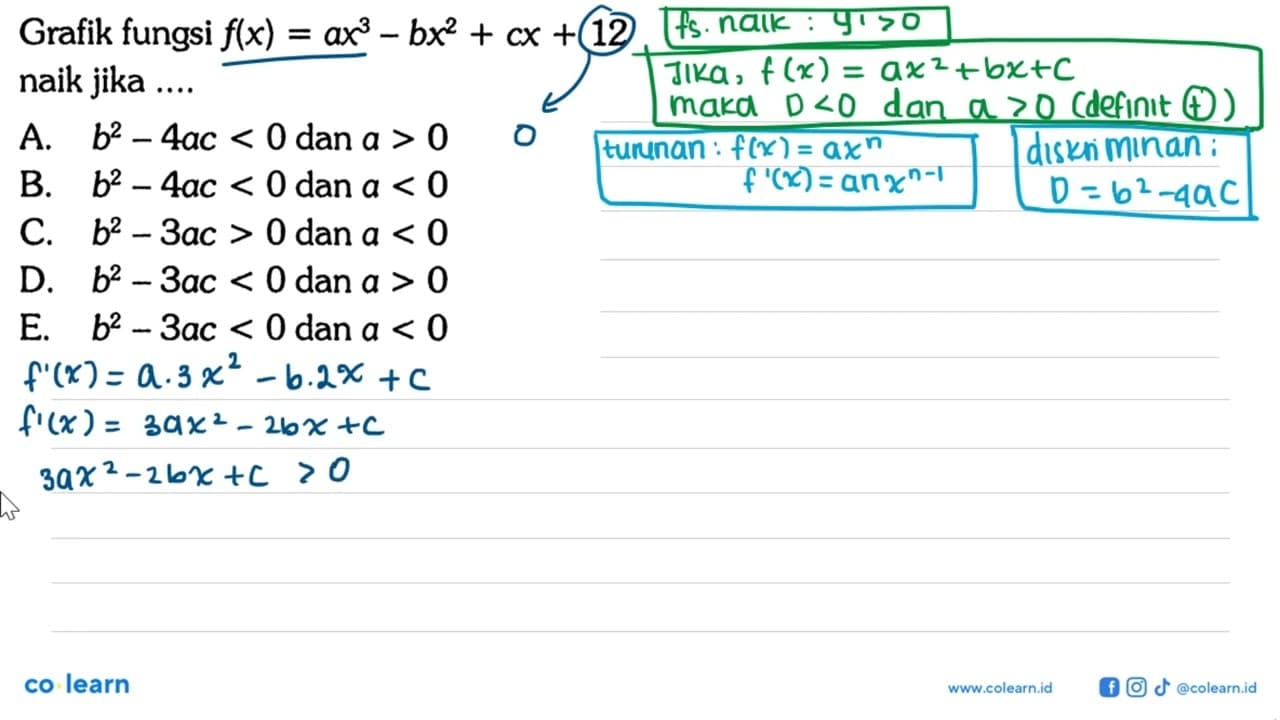 Grafik fungsi f(x) = ax³ – bx² + cx + 12
naik jika ....
A. b² – 4ac < 0 dan a > 0
B. b² – 4ac < 0 dan a < 0
C. b² – 3ac > 0 dan a < 0
D. b² – 3ac < 0 dan a > 0
E. b² – 3ac < 0 dan a < 0
0
fs. naik : y' > 0
Jika, f(x) = ax² + bx + c
maka D < 0 dan a > 0 (definit +)
turunan : f(x) = axⁿ
f'(x) = anxⁿ⁻¹
diskriminan :
D = b² – 4ac
f'(x) = a.3x² – b.2x + c
f'(x) = 3ax² – 2bx + c
3ax² – 2bx + c > 0
co learn
www.colearn.id
@colearn.id